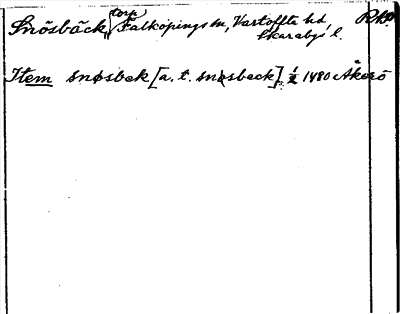 torp
Snösbäck, Falköpings sn, Vartofta hd,
Skarabgs l.
Item snøsbek [a. t. snøsbeck] 1/2 1480 Åkerö